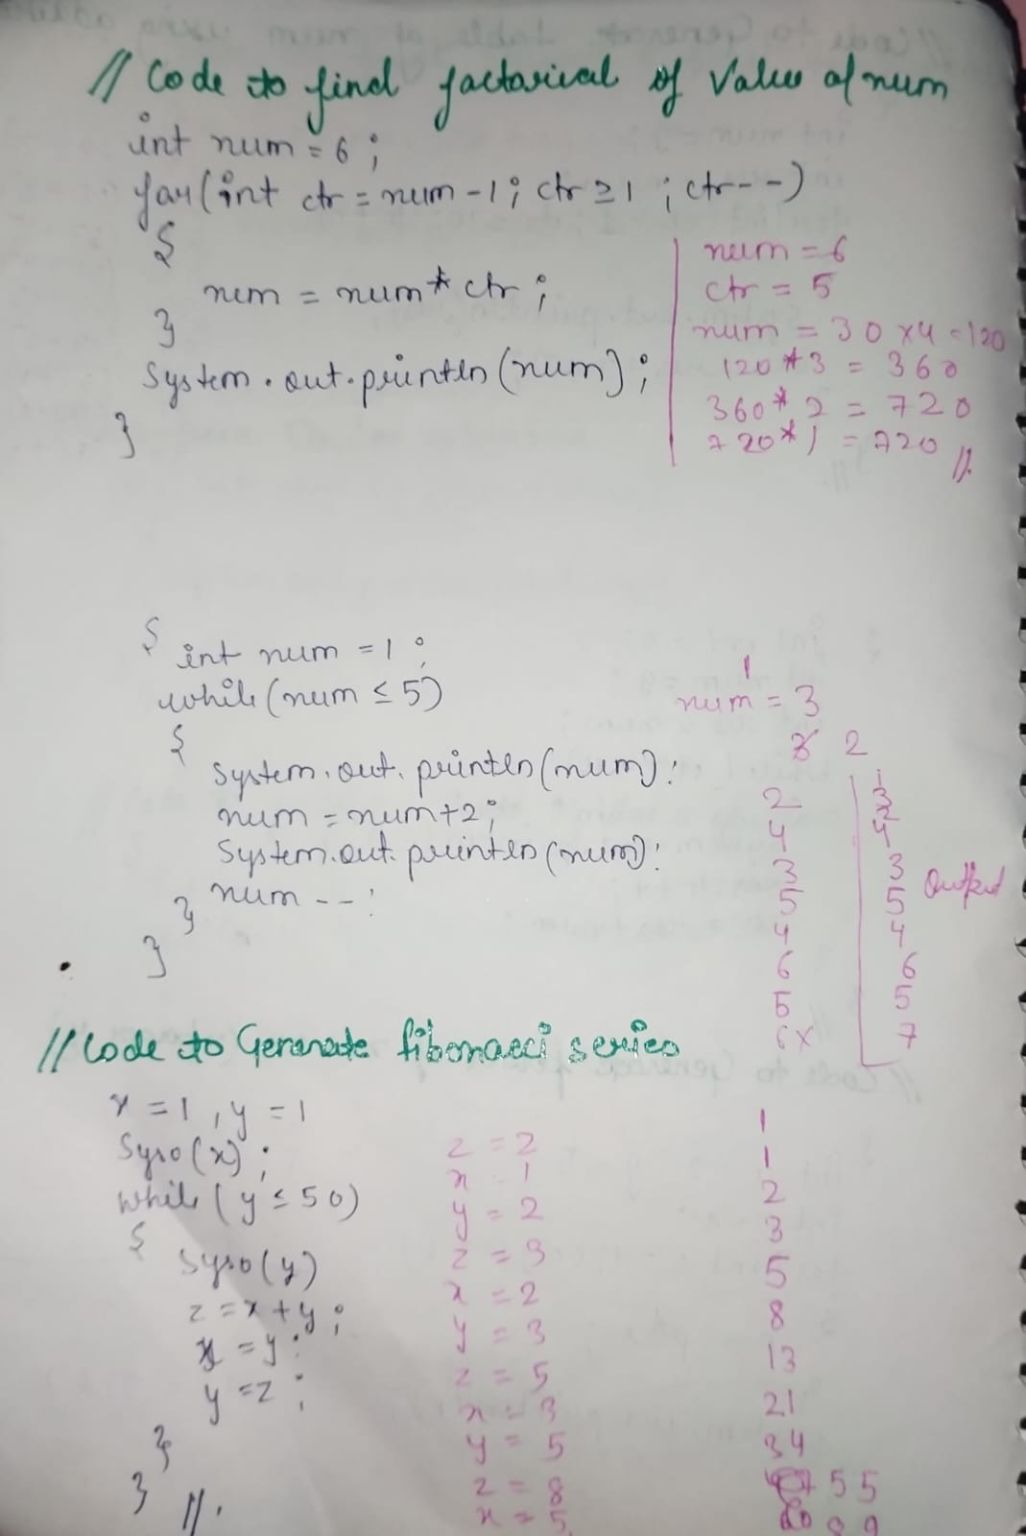 // Code to find factorical of Value of num
int num = 6 ;
for(int ctr = num -1 ; ctr ≥ 1 ; ctr--)
{
num = num * ctr ;
}
System.out.println(num) ;
}
num = 6
ctr = 5
num = 30 x4 =120
120 * 3 = 360
360 * 2 = 720
720 * 1 = 720 //.
{ int num = 1 ;
while(num ≤ 5)
{
System.out.println(num);
num = num+2;
System.out.println(num);
num --;
}
}
1
num = 3
2
2
4
3
5
4
6
5
6x
1
3
2
4
3
5
4
6
5
7
Output
// Code to Generate fibonacci series
x = 1 , y = 1
Syso(x) ;
while( y ≤ 50)
{
Syso(y)
z = x + y ;
x = y ;
y = z ;
}
} //.
z = 2
x = 1
y = 2
z = 3
x = 2
y = 3
z = 5
x = 3
y = 5
z = 8
x = 5
1
1
2
3
5
8
13
21
34
55
89